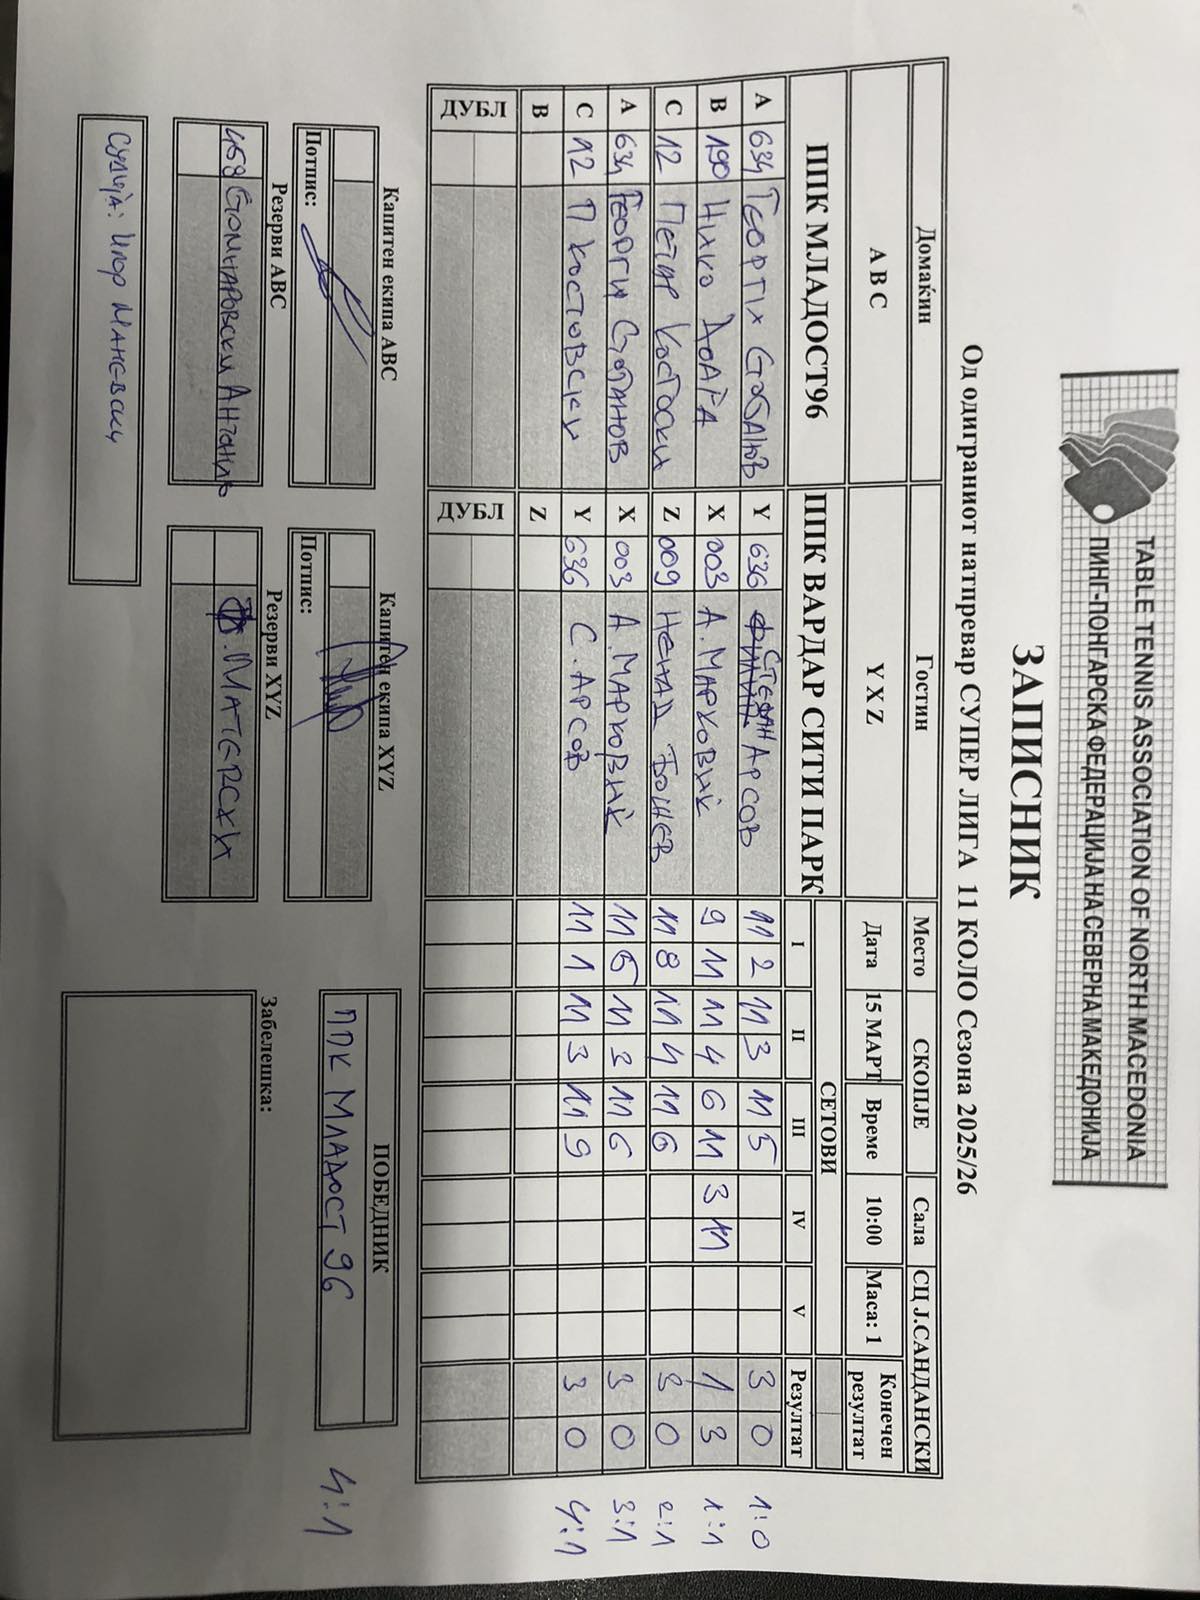 TABLE TENNIS ASSOCIATION OF NORTH MACEDONIA
ПИНГ-ПОНГАРСКА ФЕДЕРАЦИЈА НА СЕВЕРНА МАКЕДОНИЈА
ЗАПИСНИК
Од одиграниот натпревар СУПЕР ЛИГА 11 КОЛО Сезона 2025/26
Домаќин Гостин Место СКОПЈЕ Сала СЦ Ј.САНДАНСКИ
A B C Y X Z Дата 15 МАРТ Време 10:00 Маса: 1 Конечен резултат
ППК МЛАДОСТ96 ППК ВАРДАР СИТИ ПАРК СЕТОВИ
I II III IV V Резултат
A 634 Y 636 СТЕФАН АРСОВ 11 2 11 3 11 5 3 0 1:0
B 190 НИКО X 003 А. МАРКОВИЌ 9 11 11 4 6 11 3 11 1 3 1:1
C 12 ПЕТАР КОСТОСКИ Z 009 НЕНАД БОЖЕВ 11 8 11 4 11 6 3 0 2:1
A 634 ГЕОРГИ X 003 А. МАРКОВИЌ 11 11 3 11 6 3 0 3:1
C 12 П КОСТОВСКИ Y 636 С. АРСОВ 11 1 11 3 11 9 3 0 4:1
B Z
ДУБЛ ДУБЛ
Капитен екипа ABC Капитен екипа XYZ ПОБЕДНИК
Потпис: Потпис: ППК МЛАДОСТ 96 4:1
Резерви ABC Резерви XYZ Забелешка:
458
СУДИЈА: ИГОР МАНЕВСКИ